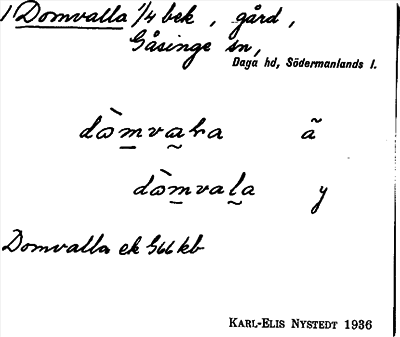 1 Domvalla 1/4 bek, gård,
Gåsinge sn,
Daga hd, Södermanlands l.
dòmvaLa ã
dòmvala y
Domvalla ek G66 kb
KARL-ELIS NYSTEDT 1936